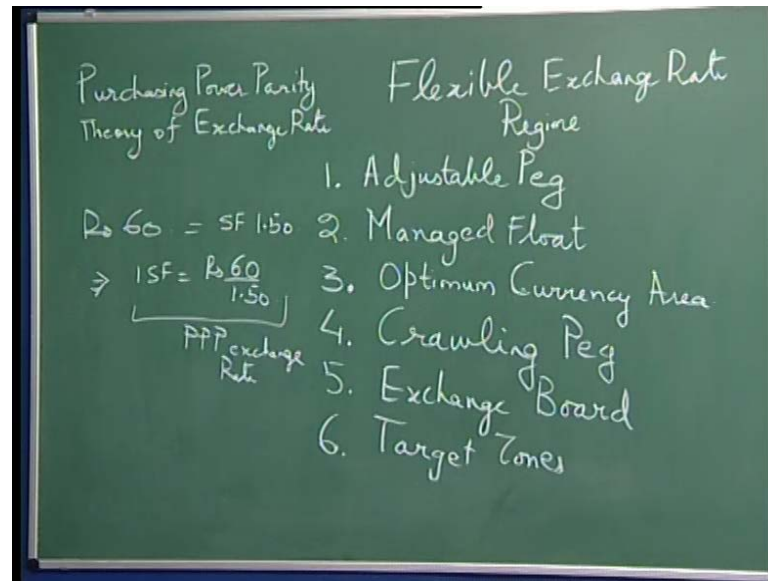 Purchasing Power Parity
Theory of Exchange Rate
Rs 60 = SF 1.50
⇒ 1 SF = Rs 60/1.50
PPP exchange
Rate
Flexible Exchange Rate
Regime
1. Adjustable Peg
2. Managed Float
3. Optimum Currency Area
4. Crawling Peg
5. Exchange Board
6. Target Zones